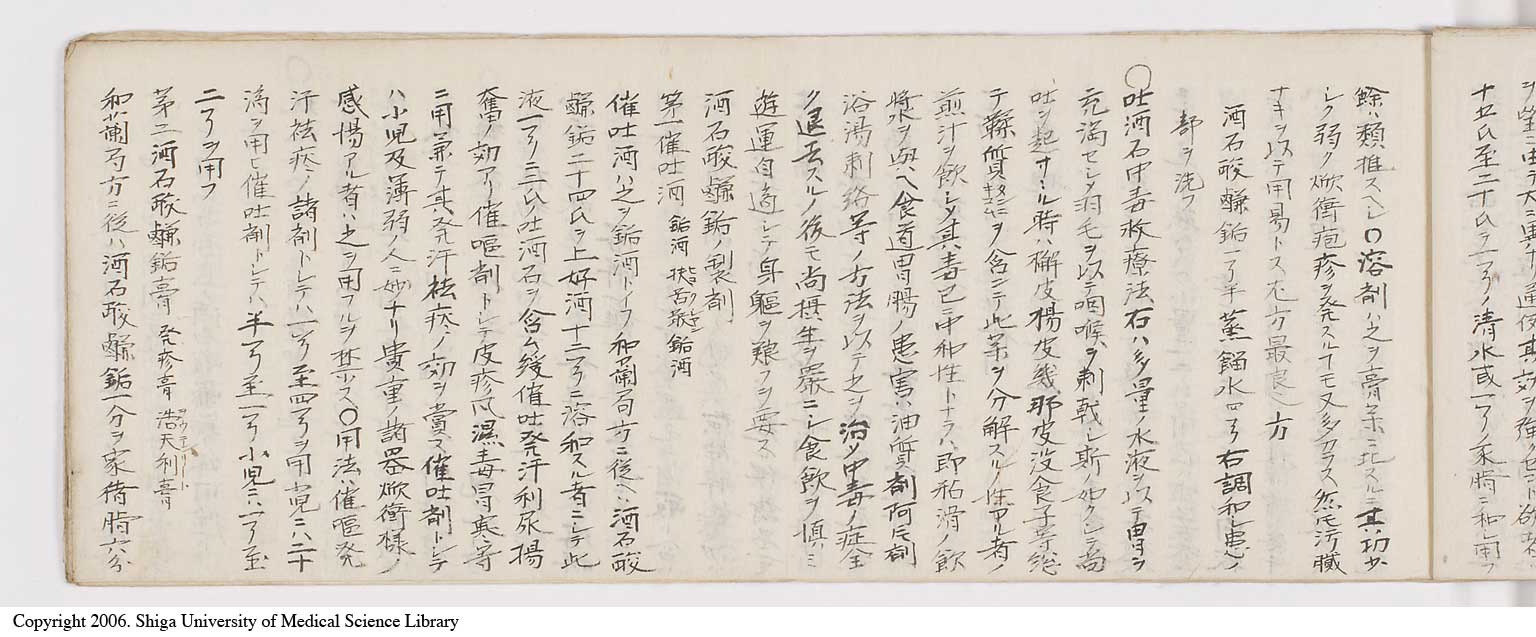 十五氏至二十氏ヲ一ヲノ清水或一ヲノ家脂ニ和シ用フ
餘ハ類推スヘシ〇溶剤ハ之ヲ膏薬ニ比スルニ其功少
シク弱ク焮衝疱疹ヲ発スルヿモ又多カラス然𪜈汚膩
ナキヲ以テ用易トス尤方最良 方
酒石酸鹻銻一半蒸餾水四 右調和シ患ノ
部ヲ洗フ
〇吐酒石中毒救療法右ハ多量ノ水液ヲ以テ胃ヲ
充満セシメ羽毛ヲ以テ咽喉ヲ刺戟シ斯ノ如クシテ尚
吐ヲ起サヽル時ハ檞皮楊皮幾那皮没食子等総
テ鞣質ヲ含ンテ此薬ヲ分解スルノ性アル者ノ
煎汁ヲ飲シメ其毒已ニ中和性トナラハ即粘滑ノ飲
液ヲ与ヘ食道胃腸ノ患害ハ油質剤阿片剤
浴湯刺絡等ノ方法ヲ以テセシ治シ中毒ノ症全
ク退去スルノ後モ尚摂生ヲ嚴ニシ食飲ヲ慎ミ
遊運自適シテ身軀ヲ養フヲ要ス
酒石酸鹻銻ノ製剤
第一催吐酒 銻酒
催吐酒ハ之ヲ銻酒トイフ和蘭局方ニ従ヘハ酒石酸
鹻銻二十四氏ヲ上好酒十二ニ溶和スル者ニシテ此
液一ニ二氏ノ吐酒石ヲ含ム緩催吐発汗利尿揚
奮ノ効アリ催嘔剤トシテ皮疹風湿毒冒寒等
ニ用兼テ其発汗祛痰ノ効ヲ賞ス催吐剤トシテ
ハ小児及薄弱ノ人ニ妙ナリ貴重ノ諸器焮衝様ノ
感愓アル者ハ之ヲ用フルヲ禁ス〇用法ハ催嘔発
汗祛痰ノ諸剤トシテハ一至四ヲ用小児ニハ二十
滴ヲ用ヒ催吐剤トシテハ半至一小児ニハ一至
二ヲ用フ
第二酒石酸鹻銻膏 発疹膏 浩天利膏
和蘭局方ニ従ハ酒石酸鹻銻一分ヲ家猪脂六分